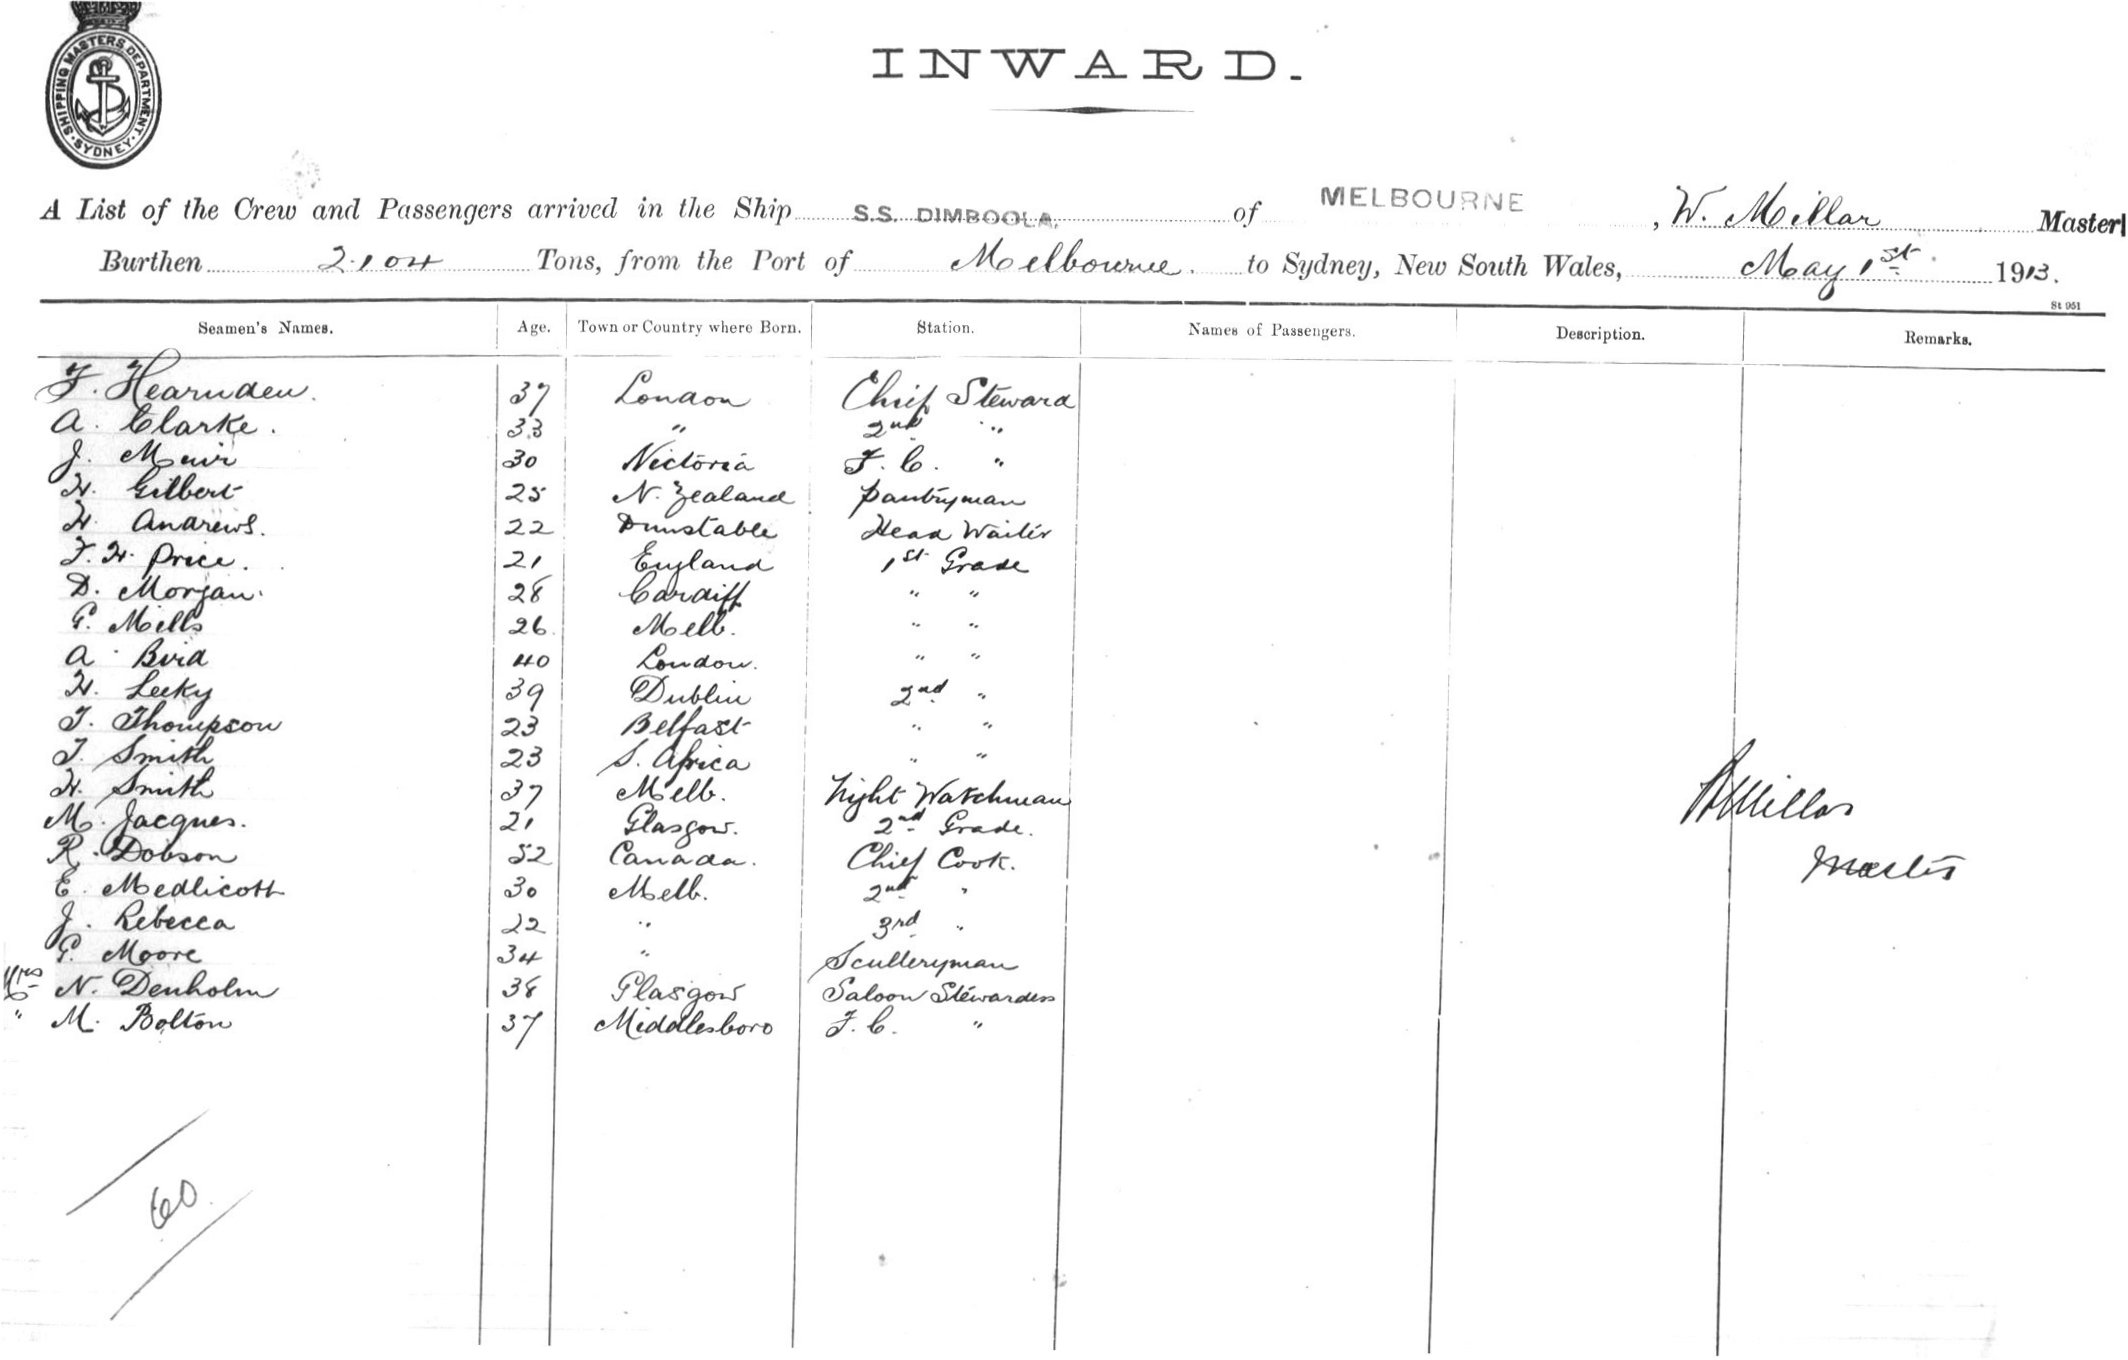 SHIPPING MASTERS DEPARTMENT. SYDNEY
INWARD.
A List of the Crew and Passengers arrived in the Ship S.S. DIMBOOLA. of MELBOURNE, W. Millar Master
Burthen 2104 Tons, from the Port of Melbourne. to Sydney, New South Wales, May 1st 1913.
St 951
Seamen's Names. Age. Town or Country where Born. Station. Names of Passengers. Description. Remarks.
F. Hearnden. 37 London Chief Steward
A. Clarke. 33 " 2nd "
J. Muir 30 Victoria F. C. "
H. Gilbert 25 N. Zealand Pantryman
H. Andrews. 22 Dunstable Head Waiter
F. H. Price. 21 England 1st Grade
D. Morgan. 28 Cardiff " "
G. Mills 26 Melb. " "
A. Bird 40 London. " "
H. Leeky 39 Dublin 2nd "
T. Thompson 23 Belfast " "
T. Smith 23 S. Africa " "
H. Smith 37 Melb. Night Watchman
M. Jacques. 21 Glasgow. 2nd Grade.
R. Dobson 52 Canada. Chief Cook.
E. Medlicott 30 Melb. 2nd "
J. Rebecca 22 " 3rd "
G. Moore 34 " Sculleryman
Mrs N. Denholm 38 Glasgow Saloon Stewardess
" M. Bolton 37 Middlesboro F. C. "
W Millar
Master
60